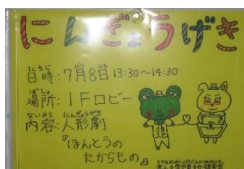 にんぎょうげき
日時:7月8日 13:30〜14:30
場所:1Fロビー
内容:人形劇
『ほんとうの
たからもの』